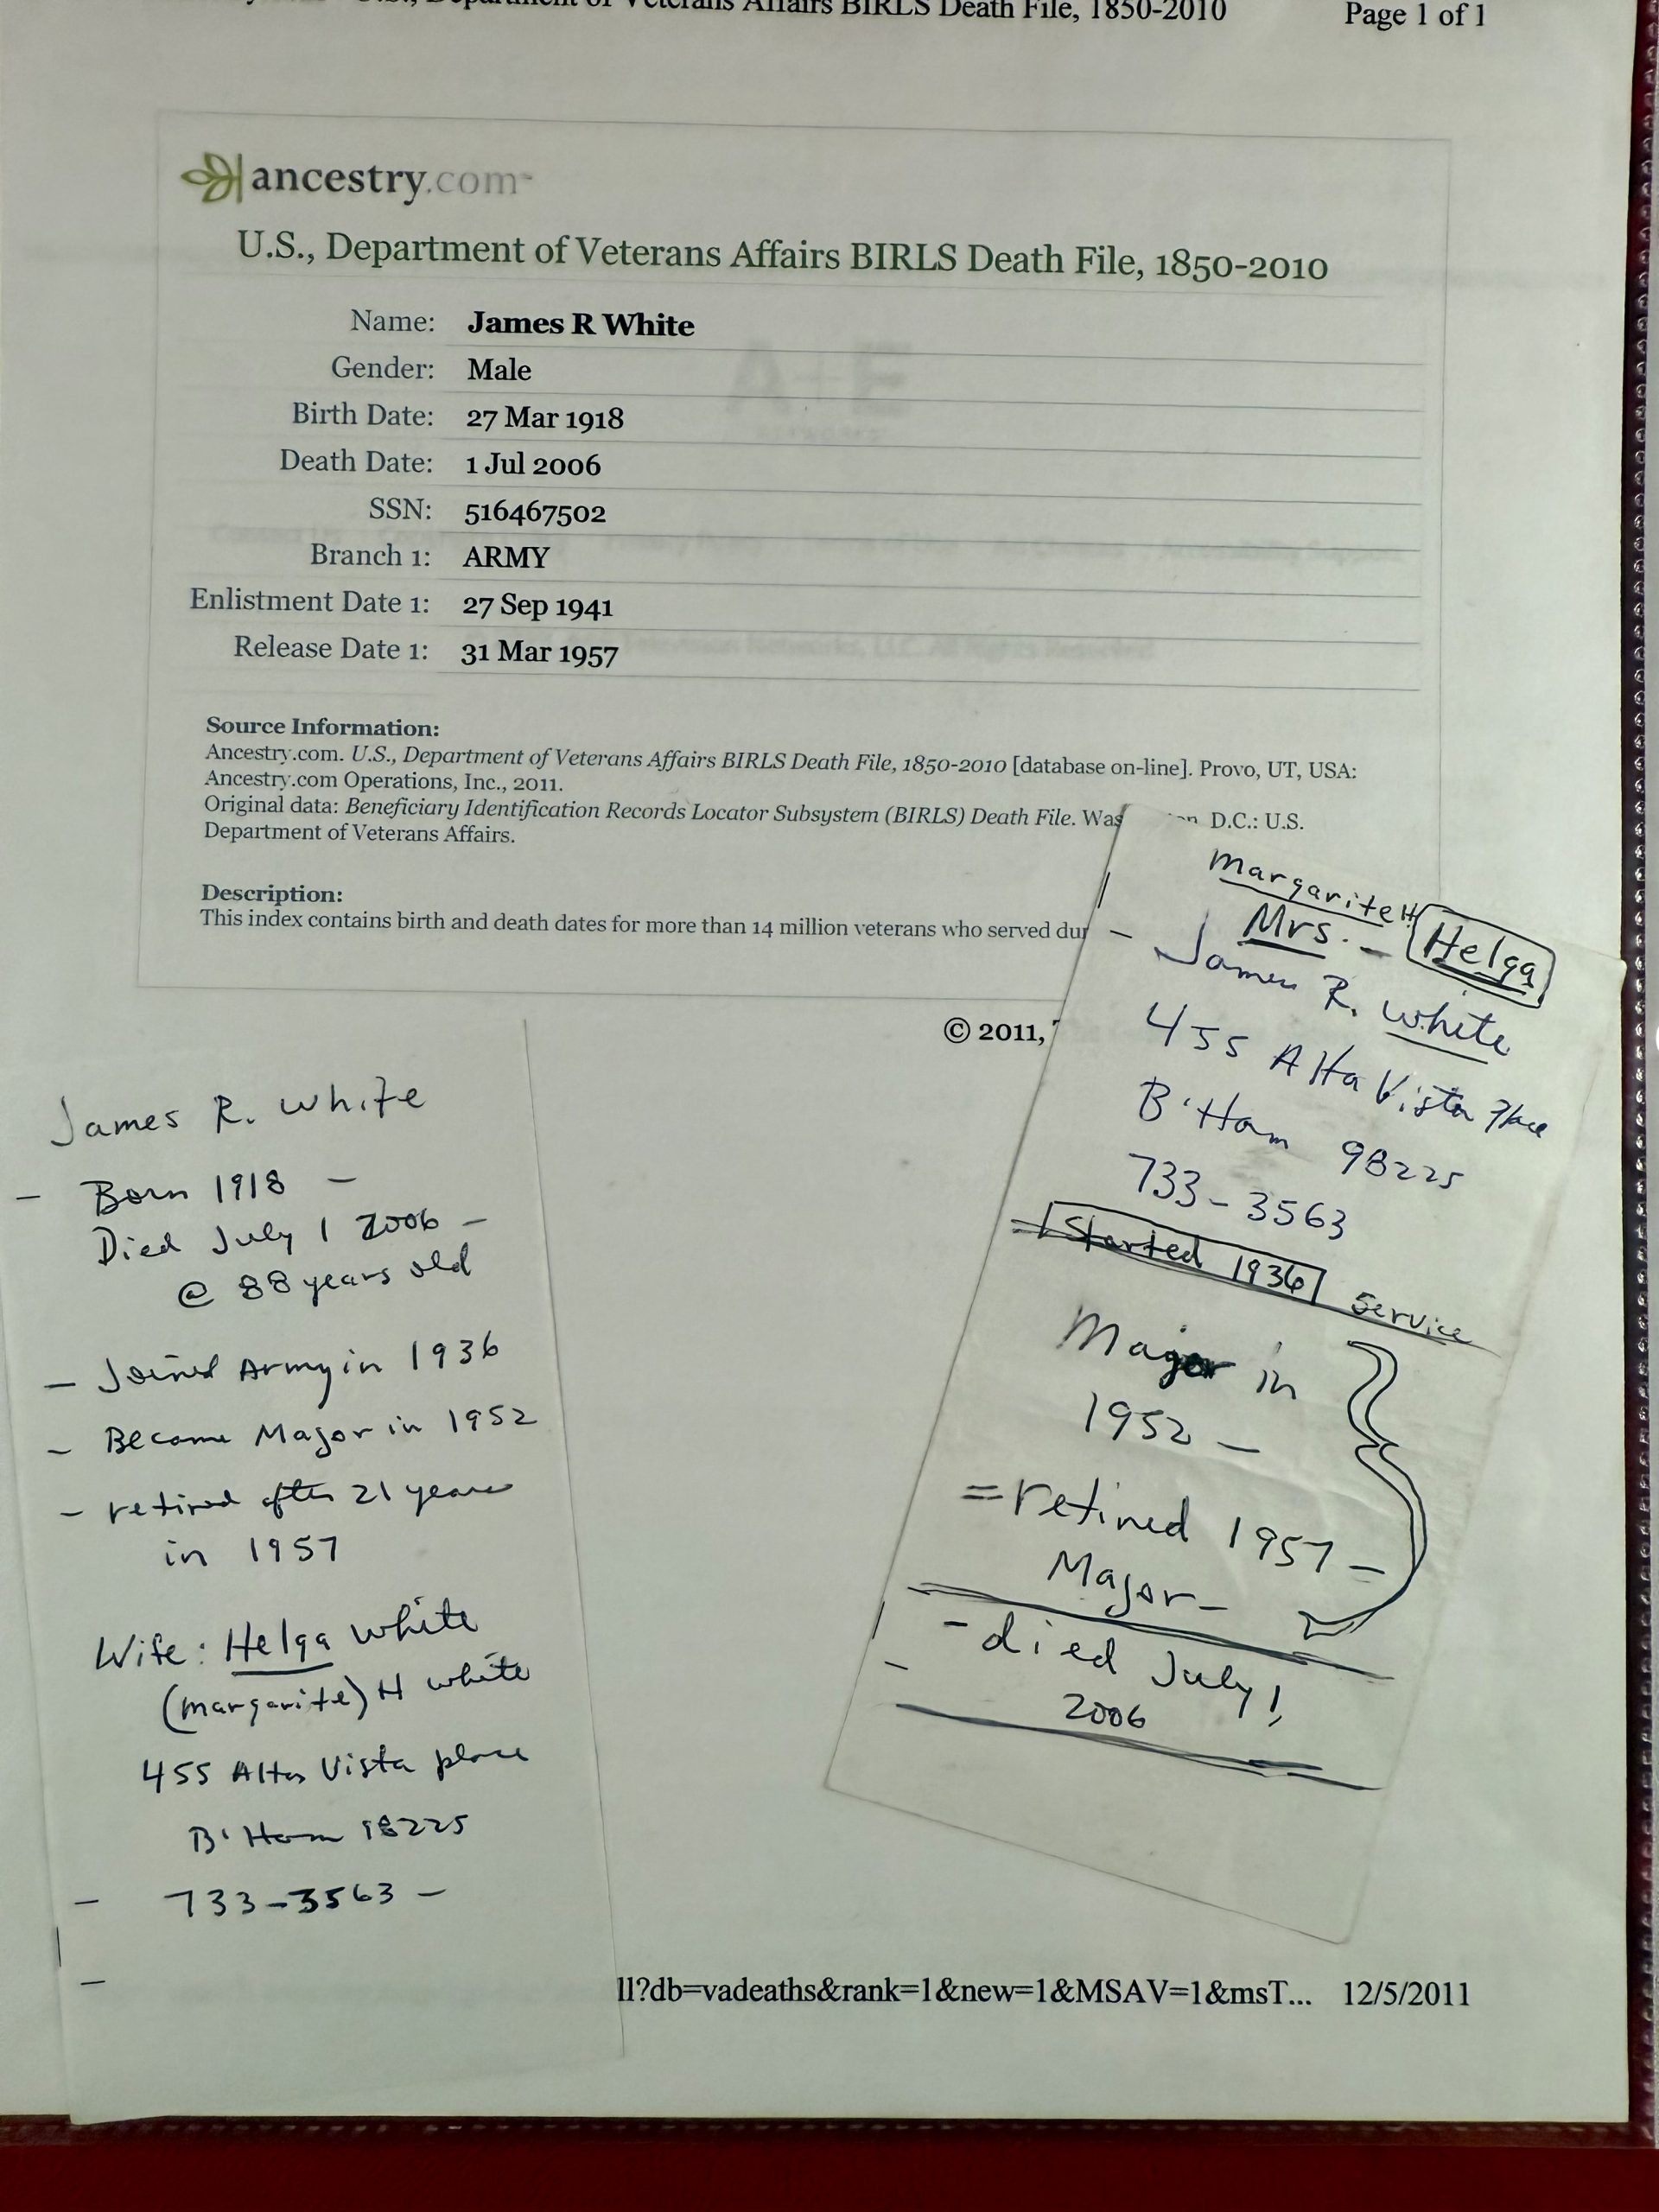 Department of Veterans Affairs BIRLS Death File, 1850-2010 Page 1 of 1
ancestry.com
U.S., Department of Veterans Affairs BIRLS Death File, 1850-2010
Name: James R White
Gender: Male
Birth Date: 27 Mar 1918
Death Date: 1 Jul 2006
SSN: 516467502
Branch 1: ARMY
Enlistment Date 1: 27 Sep 1941
Release Date 1: 31 Mar 1957
Source Information:
Ancestry.com. U.S., Department of Veterans Affairs BIRLS Death File, 1850-2010 [database on-line]. Provo, UT, USA:
Ancestry.com Operations, Inc., 2011.
Original data: Beneficiary Identification Records Locator Subsystem (BIRLS) Death File. Was on D.C.: U.S.
Department of Veterans Affairs.
Description:
This index contains birth and death dates for more than 14 million veterans who served dur
© 2011,
James R. White
- Born 1918 -
Died July 1 2006 -
@ 88 years old
- Joined Army in 1936
- Became Major in 1952
- retired after 21 years
in 1957
Wife: Helga White
(margarite) H white
455 Alta Vista place
B'Ham 98225
- 733-3563 -
-
margarite H
Mrs. - Helga
- James R. White
455 Alta Vista Place
B'Ham 98225
733-3563
Started 1936 Service
Major in
1952 -
= retired 1957 -
Major -
- died July 1,
- 2006
ll?db=vadeaths&rank=1&new=1&MSAV=1&msT... 12/5/2011